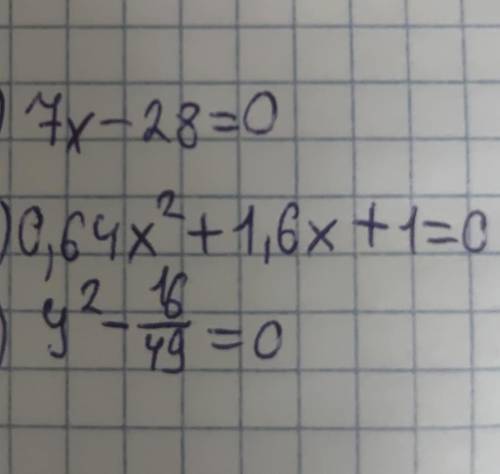 ) 7x - 28 = 0
) 0,64x² + 1,6x + 1 = 0
) y² - 16/49 = 0